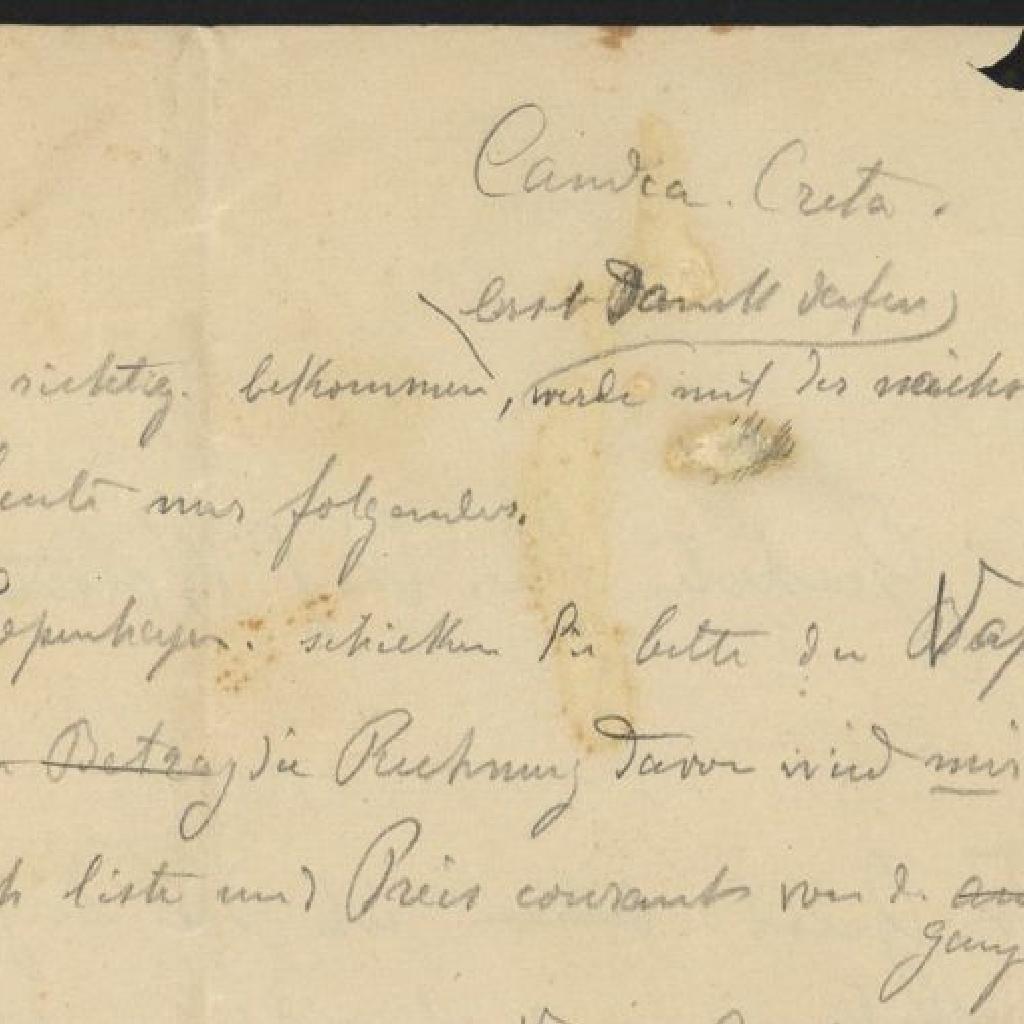 Candia. Creta.
erst Damit
richtig. bekommen, werde mit der
nur folgendes.
Copenhagen. schicken Sie bitte die
Betrag die Rechnung davon wird mir
liste und Preis courants von d.